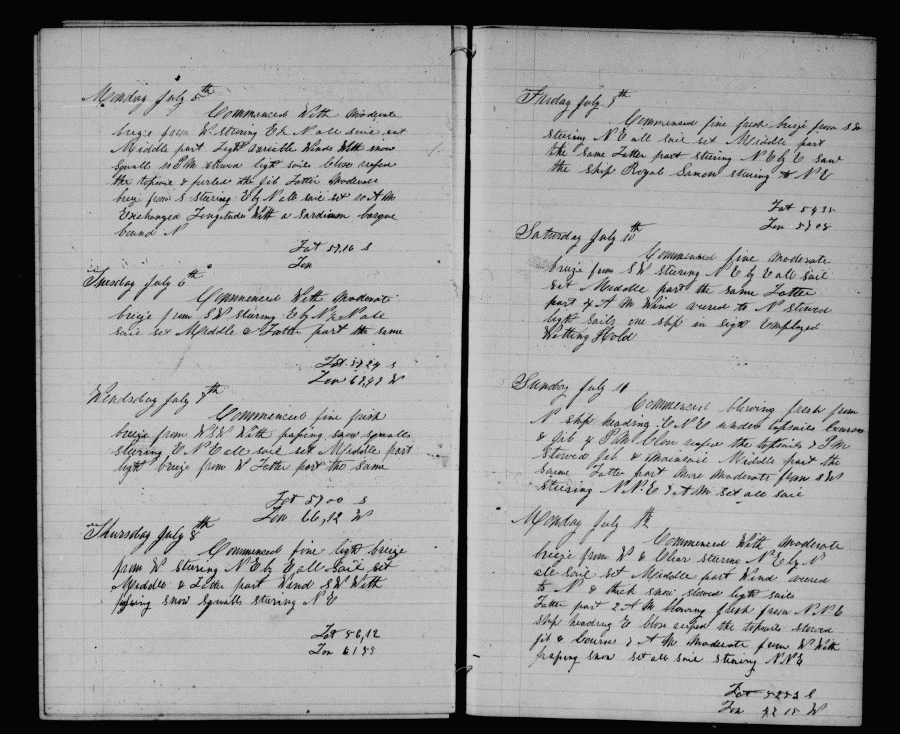 Monday July 5th
Commenced With Moderate
breeze from W stering E½N all saie set
Middle part Light variable Winds With snow
squalls 10 P M stowed light sails Close reefed
the topsails & furled the jib Latter Moderate
breeze from S stering E by N all saie set 10 A M
Exchanged Longitude With a Sardinian barque
bound N
Lat 57,16 S
Lon
Tuesday July 6th
Commenced With Moderate
breeze from SW stering E by N½N all
saie set Middle & Latter part the same
Lat 57 27 S
Lon 69,47 W
Wendsday July 7th
Commenced fine fresh
breeze from WSW With passing snow squalls
stering E N E all saie set Middle part
light breeze from W Latter part the same
Lat 57 00 S
Lon 66,12 W
Thursday July 8th
Commenced fine light breeze
from W stering N E by E all Saie set
Middle & Latter part Wind SW With
passing snow squalls stering N E
Lat 56,12
Lon 61 55
Friday July 9th
Commenced fine fresh breeze from S W
stering N E all saie set Middle part
the same Latter part stering N E by E saw
the ship Royal stering to N E
Lat 54 35
Lon 57 08
Saturday July 10th
Commenced fine Moderate
breeze from S W stering N E by E all saie
set Middle part the same Latter
part 4 A M Wind veered to N stowed
light sails one ship in sight Employed
Wetting Hold
Sunday July 11
Commenced blowing fresh from
N ship heading E N E under topsailes Courses
& jib 4 P M Close reefed the topsails 7 P M
stowed jib & mainsail Middle part the
same Latter part More Moderate from SW
stering N N E 7 A M set all saie
Monday July 12th
Commenced With Moderate
breeze from W & Clear stering N E by N
all saie set Middle part Wind veered
to N & thick snow stowed light saies
Latter part 2 A M blowing fresh from N N E
ship heading E Close reefed the topsails stowed
jib & Courses 7 A M Moderate from W With
passing snow set all saie stering N N E
Lat 52 52 S
Lon 15 W